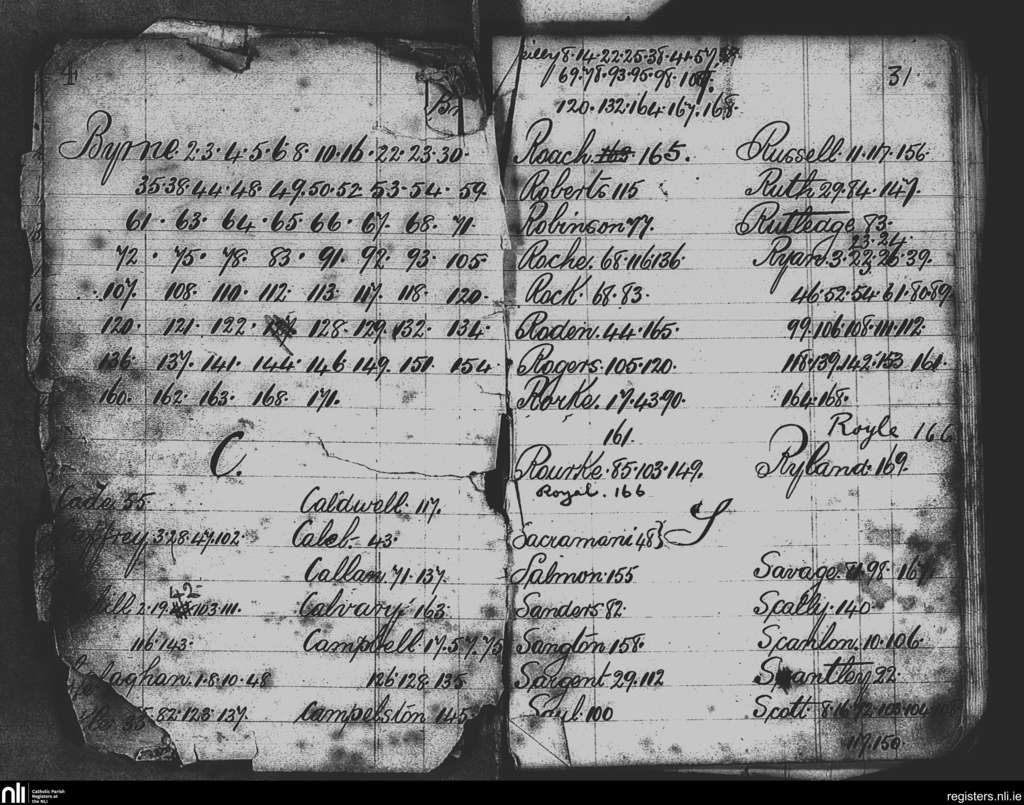 4
Byrne 2.3.4.5.6.8.10.16.22.23.30.
35.38.44.48.49.50.52.53.54.59
61.63.64.65.66.67.68.71.
72.75.78.83.91.92.93.105
107.108.110.112.113.117.118.120.
120.121.122. 128.129.132.134.
136.137.141.144.146.149.151.154.
160.162.163.168.171.
C.
55 Caldwell. 117.
3.28.47.102. Caleb. 43.
Callan 71.137.
42
2.19. 103.111. Calvary 163.
116.143. Campbell. 17.57.75
1.8.10.48 126.128.135
82.123.137. Campelston 145
8.14.22.25.38.41.57.
31
69.78.93.95.98.
120.132.164.167.168.
Roach. 165. Russell. 11.117.156.
Roberts 115 Ruth 29.84.147.
Robinson 77. Rutledge 83.
23.24.
Roche. 68.116.136 Ryan. 3.22.26.39.
Rock. 68.83. 46.52.54.61.80.89.
Roden. 44.165. 99.106.108.111.112.
Rogers. 105.120. 118.139.142.153 161.
Rorke. 17.43.90. 164.168.
161. Royle 166
Rourke. 85.103.149. Ryland. 169.
Royal. 166
S
Sacramani 48}
Salmon. 155 Savage. 71.98.
Sanders 82 Scally. 140.
Sangton 158. Scanlon. 10.106
Sargent 29.112 22.
100 Scott
117.150.
nli
Catholic Parish
Registers at
the NLI
registers.nli.ie